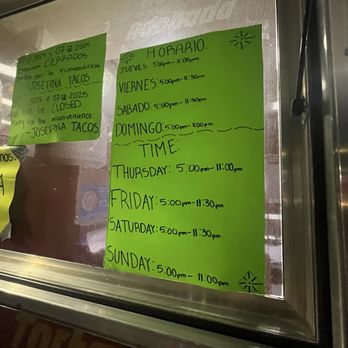 obada
07-18-2025
CERRADOS
JOSEFINA TACOS
2025 & 07-18-2025
be CLOSED
for the inconvenience
-JOSEFINA TACOS
HORARIO:
JUEVES: 5:00pm-11:00pm
VIERNES: 5:00pm-11:30pm
SABADO: 5:00pm-11:30pm
DOMINGO: 5:00pm-11:00pm
TIME:
THURSDAY: 5:00pm-11:00pm
FRIDAY: 5:00pm-11:30pm
SATURDAY: 5:00pm-11:30pm
SUNDAY: 5:00pm-11:00pm